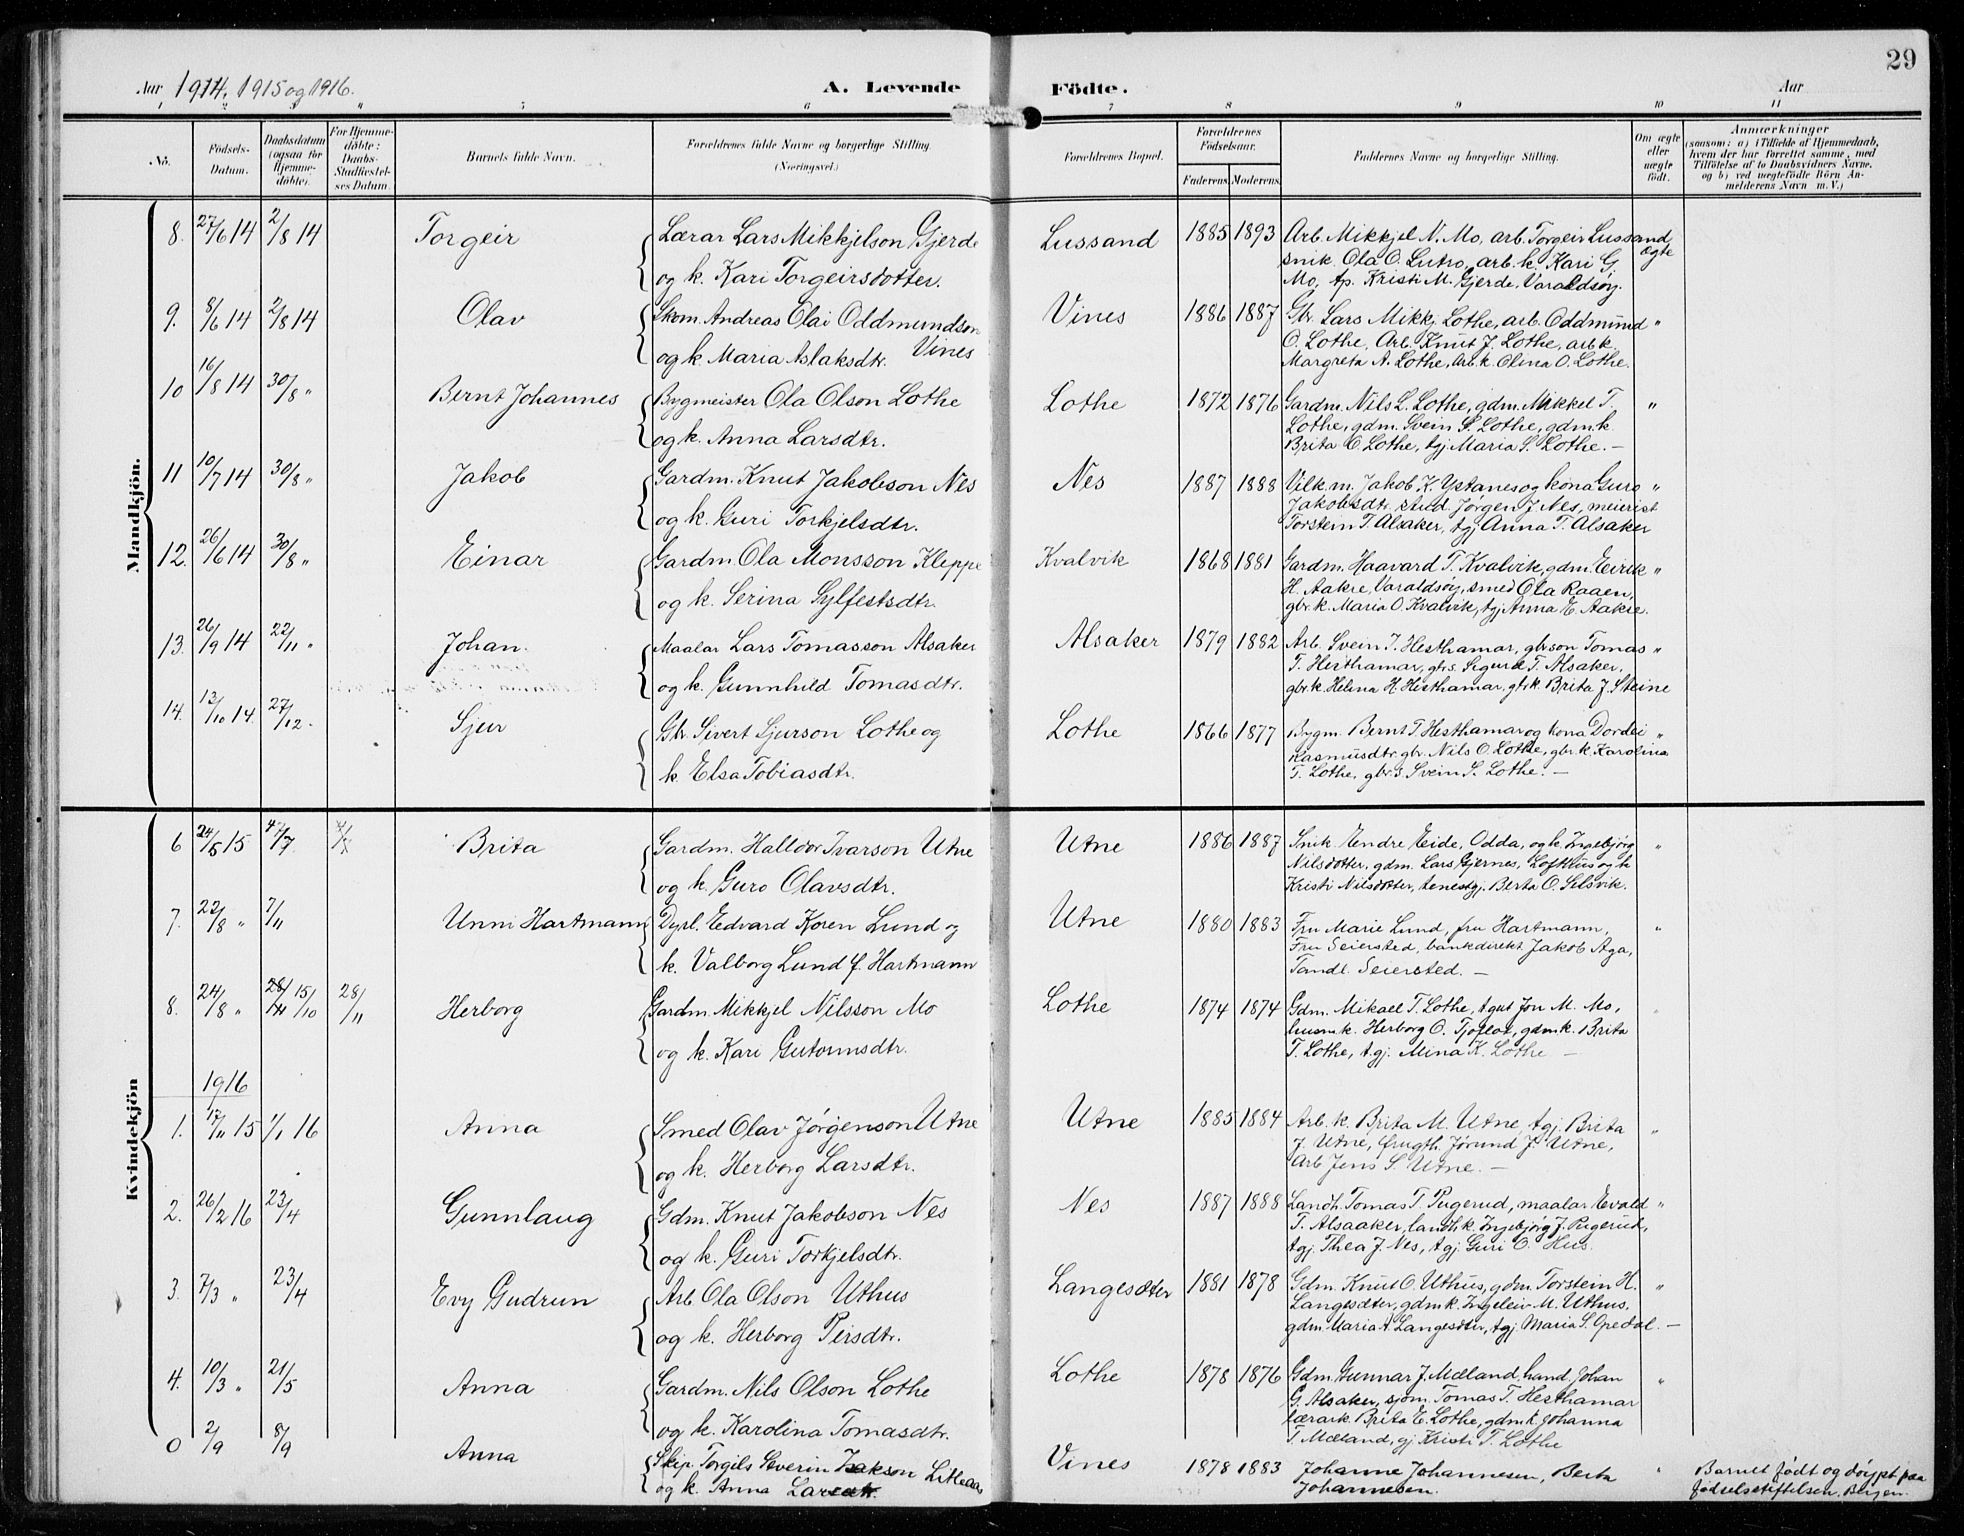 29
Aar 1914, 1915 og 1916.
A. Levende Födte.
Aar
No. Födsels-Datum. Daabsdatum (ogsaa for Hjemme-döbte). For Hjemme-döbte: Daabs-Stadfæstel-ses Datum. Barnets fulde Navn. Forældrenes fulde Navne og borgerlige Stilling. (Næringsvei.) Forældrenes Bopæl. Forældrenes Födselsaar. Faderens. Moderens. Faddernes Navne og borgerlige Stilling. Om ægte eller uægte födt. Anmærkninger (saasom: a) i Tilfælde af Hjemmedaab, hvem der har forrettet samme, med Tilföielse af to Daabsvidners Navne. og b) ved uægtefödte Börn Anmelderens Navn m. V.)
Mandkjön.
8. 27/6 14 2/8 14 Torgeir Lærar Lars Mikkjelson Gjerde Lussand 1885 1893 Arb. Mikkjel N. Mo, arb. Torgeir Lussand ægte
og k. Kari Torgeirsdotter. snik. Ola O. Lutro, arb. k. Kari G.
Mo, tp. Kristi M. Gjerde, Varaldsøy.
9. 8/6 14 2/8 14 Olav Skom. Andreas Olai Oddmundson Vines Vines 1886 1887 Gbr. Lars Mikkj. Lothe, arb. Oddmund "
og k. Maria Aslaksdtr. O. Lothe, Arb. Knut J. Lothe, arb. k.
Margreta A. Lothe, Arb. k. Olina O. Lothe.
10 16/8 14 30/8 " Bernt Johannes Bygmeister Ola Olson Lothe Lothe 1872 1876 Gardm. Nils L. Lothe, gdm. Mikkel T. "
og k. Anna Larsdtr. Lothe, gdm. Svein S. Lothe, gdm. k.
Brita O. Lothe, tgj. Maria S. Lothe. —
11 10/7 14 30/8 " Jakob Gardm. Knut Jakobson Nes Nes 1887 1888 Vilk. m. Jakob K. Ystanes og kona Guro "
og k. Guri Torkjelsdtr. Jakobsdtr. stud. Jørgen J. Nes, meierist
Torstein T. Alsaker, tgj. Anna T. Alsaker
12. 26/6 14 30/8 " Einar Gardm. Ola Monsson Kleppe Kvalvik 1868 1881 Gardm. Haavard T. Kvalvik, gdm. Eirik "
og k. Serina Sylfestsdtr. H. Aakre, Varaldsøy, smed Ola Raaen,
gbr. k. Maria O. Kvalvik, tgj. Anna E. Aakre.
13. 26/9 14 22/11 " Johan. Maalar Lars Tomasson Alsaker Alsaker 1879 1882 Arb. Svein T. Hesthamar, gbrson Tomas "
og k. Gunnhild Tomasdtr. T. Hesthamar, gbrs. Sigurd T. Alsaker,
gbr. k. Helena H. Hesthamar, gbr. k. Brita J. Steine
14. 13/10 14. 27/12. Sjur Gbr. Sivert Sjurson Lothe og Lothe 1866 1877 Bygm. Bernt T. Hesthamar og kona Dordei "
k. Elsa Tobiasdtr. Rasmusdtr. gbr. Nils O. Lothe, gbr. k. Karolina
T. Lothe, gbrs. Svein S. Lothe. —
Kvindekjön
6 24/5 15 4/7 Brita Gardm. Halldor Ivarson Utne Utne 1886 1887 Snik. Endre Eide, Odda, og k. Ingebjørg "
og k. Guro Olavsdtr. Nilsdotter, gdm. Lars Gjernes, Lofthus og k
Kristi Nilsdotter, tenestgj. Berta O. Selsvik.
7. 22/8 " 7/11 Unni Hartmann Dyrl. Edvard Koren Lund og Utne 1880 1883 Fru Marie Lund, fru Hartmann, "
k. Valborg Lund f. Hartmann Fru Seiersted, bankdirekt. Jakob Aga,
Tandl. Seiersted. —
8. 24/8 " 15/10 28/11 Herborg Gardm. Mikkjel Nilsson Mo Lothe 1874 1874 Gdm. Mikael T. Lothe, tgut Jon M. Mo, "
og k. Kari Gutormsdtr. husm. k. Herborg O. Tjoflot, gdm. k. Brita
T. Lothe, tgj. Mina K. Lothe —
1916
1. 17/11 15 1/1 16 Anna Smed Olav Jørgenson Utne Utne 1885 1884 Arb. k. Brita M. Utne, tgj. Brita "
og k. Herborg Larsdtr. J. Utne, frugth. Jørund J. Utne,
Arb Jens S. Utne. —
2. 26/2 16 23/4 Gunnlaug Gdm. Knut Jakobson Nes Nes 1887 1888 Landh. Tomas T. Pugerud, maalar Evald "
og k. Guri Torkjelsdtr. T. Alsaaker, landh. k. Ingebjørg J. Pugerud,
tgj. Thea J. Nes, tgj. Guri O. Hus.
3. 7/3 " 23/4 Evy Gudrun Arb. Ola Olson Uthus Langesæter 1881 1878 Gdm. Knut O. Uthus, gdm. Torstein H. "
og k. Herborg Persdtr. Langesæter, gdm. k. Ingeleiv M. Uthus,
gdm. Maria A. Langesæter, tgj. Maria S. Opedal. —
4. 10/3 " 21/5 Anna Gardm. Nils Olson Lothe Lothe 1878 1876 Gdm. Gunnar J. Mæland, hand. Johan "
og k. Karolina Tomasdtr. G. Alsaker, sjom. Tomas T. Hesthamar
lærark. Brita E. Lothe, gdm. k. Johanna
T. Mæland, gj. Kristi T. Lothe
0 2/9 8/9 Anna Skip. Torgils Severin Isakson Litleaas Vines 1878 1883 Johanne Johannesen, Berta " Barnet født og døypt paa
og k. Anna Larsdtr. Johannesen. fødselsstiftelsen, Bergen.